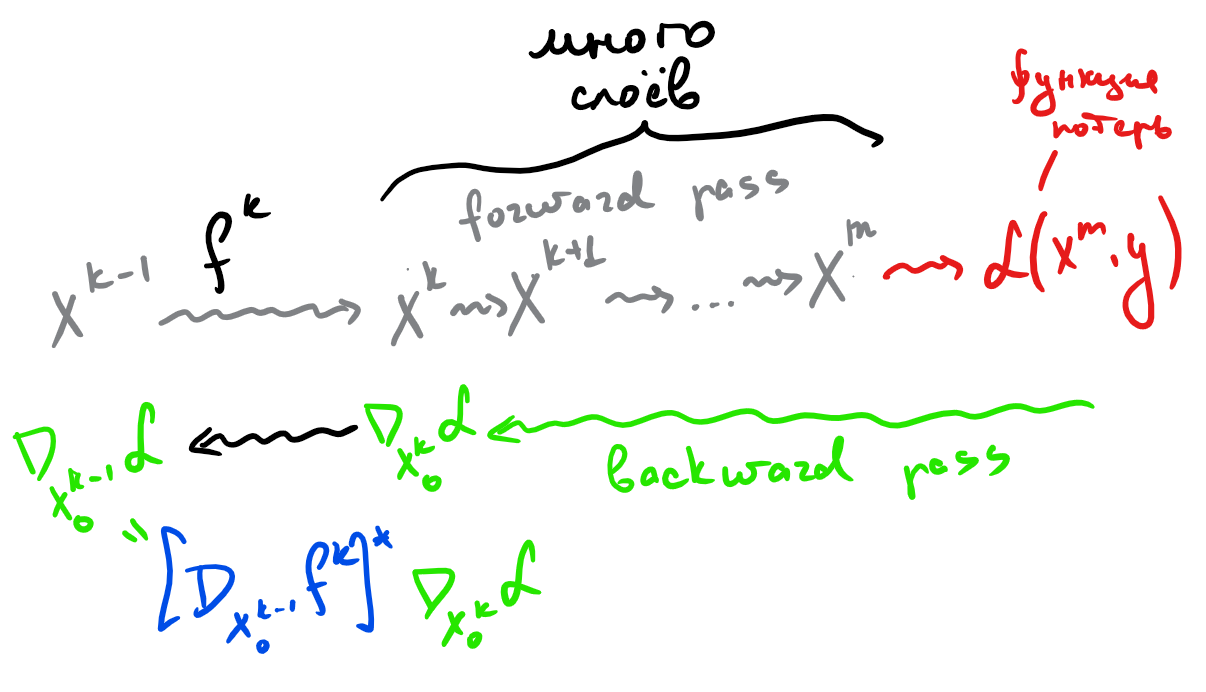 много
слоёв
функция
потерь
forward pass
f^k
X^{k-1} → X^k → X^{k+1} → ... → X^m → ℒ(X^m, y)
∇_{X_0^{k-1}} ℒ ← ∇_{X_0^k} ℒ ←
backward pass
= [D_{X_0^{k-1}} f^k]^* ∇_{X_0^k} ℒ